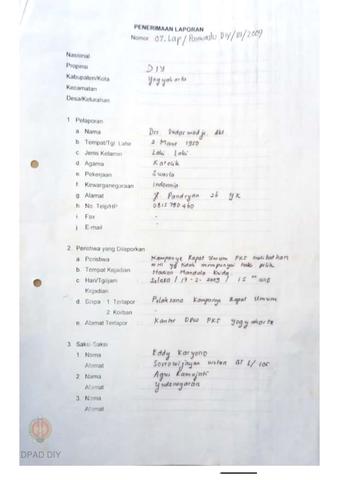 PENERIMAAN LAPORAN
Nomor 07.Lap/Panwaslu DIY/III/2009
Nasional
Propinsi DIY
Kabupaten/Kota Yogyakarta
Kecamatan
Desa/Kelurahan
1 Pelaporan
a Nama Drs.
b Tempat/Tgl Lahir 2 Maret 1950
c Jenis Kelamin Laki Laki
d Agama Katolik
e Pekerjaan Swasta
f Kewarganegaraan Indonesia
g Alamat Jl Pandeyan 26 YK
h No. Telp/HP 0815 790 460
i Fax -
j E-mail -
2. Peristiwa yang Dilaporkan
a Peristiwa Kampanye Rapat Umum PKS melibatkan
yg tidak mempunyai hak pilih
b Tempat Kejadian Stadion Mandala Krida
c Hari/Tgl/jam Selasa / 17-2-2009 / 15
Kejadian
d Siapa 1 Terlapor Pelaksana Kampanye Rapat Umum
2 Korban -
e Alamat Terlapor Kantor DPW PKS Yogyakarta
3. Saksi-Saksi
1. Nama Eddy Karyono
Alamat Sosrowijayan wetan GT 1/105
2. Nama Agus
Alamat Yudonegaran
3. Nama
Alamat
DPAD DIY